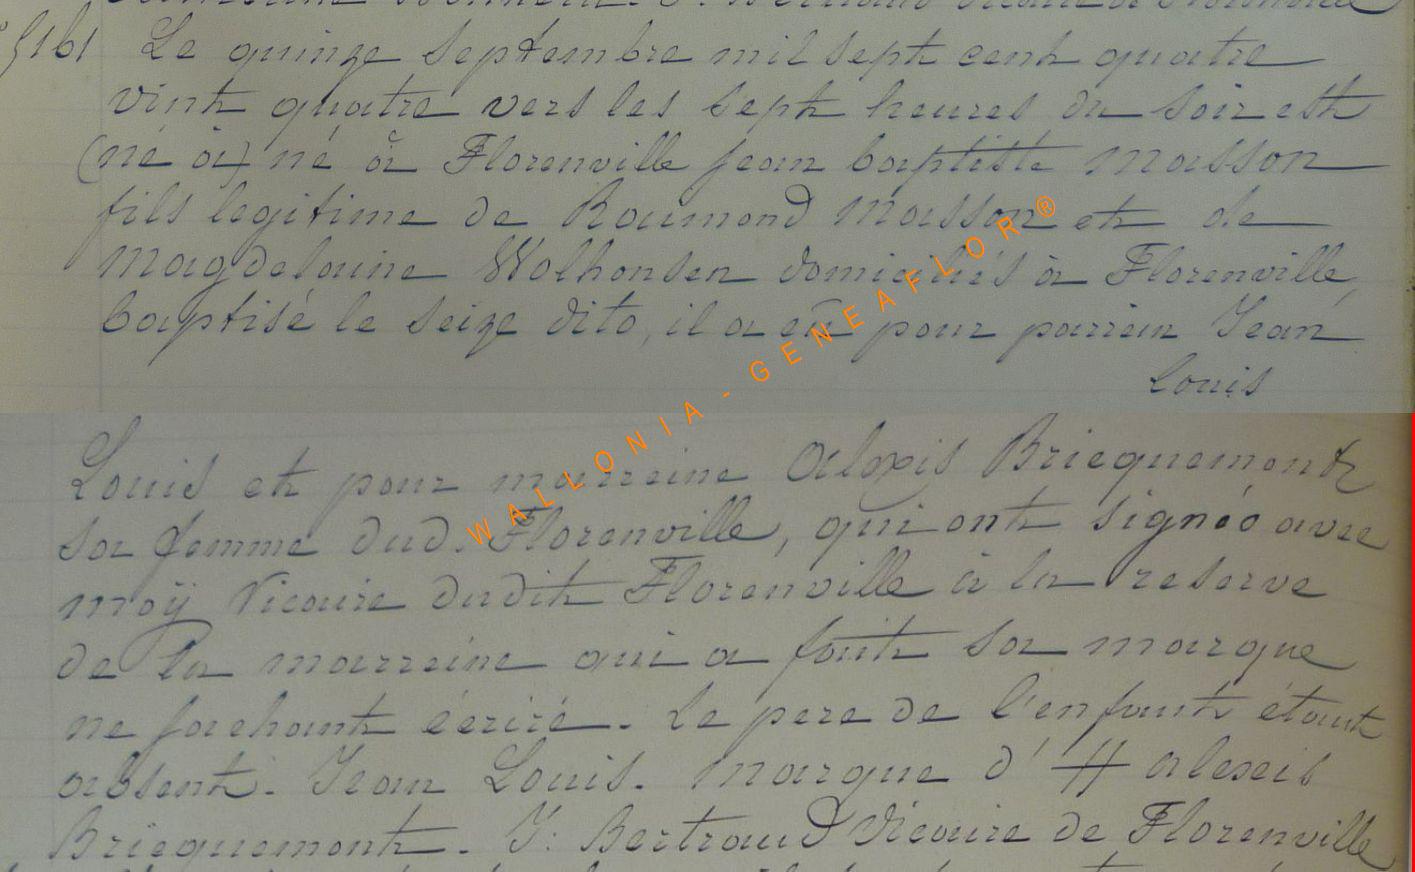 5161 Le quinze septembre mil sept cent quatre
vint quatre vers les sept heures du soir est
(né à) né à Florenville jean baptiste Masson
fils legitime de Raumond Masson et de
Magdelaine Wolhonsen domiciliés à Florenville,
baptisé le seize dito, il a eû pour parrein Jean
Louis
Louis et pour marreine Alexis Briequemont
sa femme dud. Florenville, qui ont signéo avec
moÿ Vicaire dudit Florenville à la reserve
de la marreine qui a fait sa marque
ne sachant écrire. Le pere de l'enfant étant
absent. Jean Louis. Marque d' # alexis
Briequemont. J: Bertrand Vicaire de Florenville
WALLONIA - GENEAFLOR ®